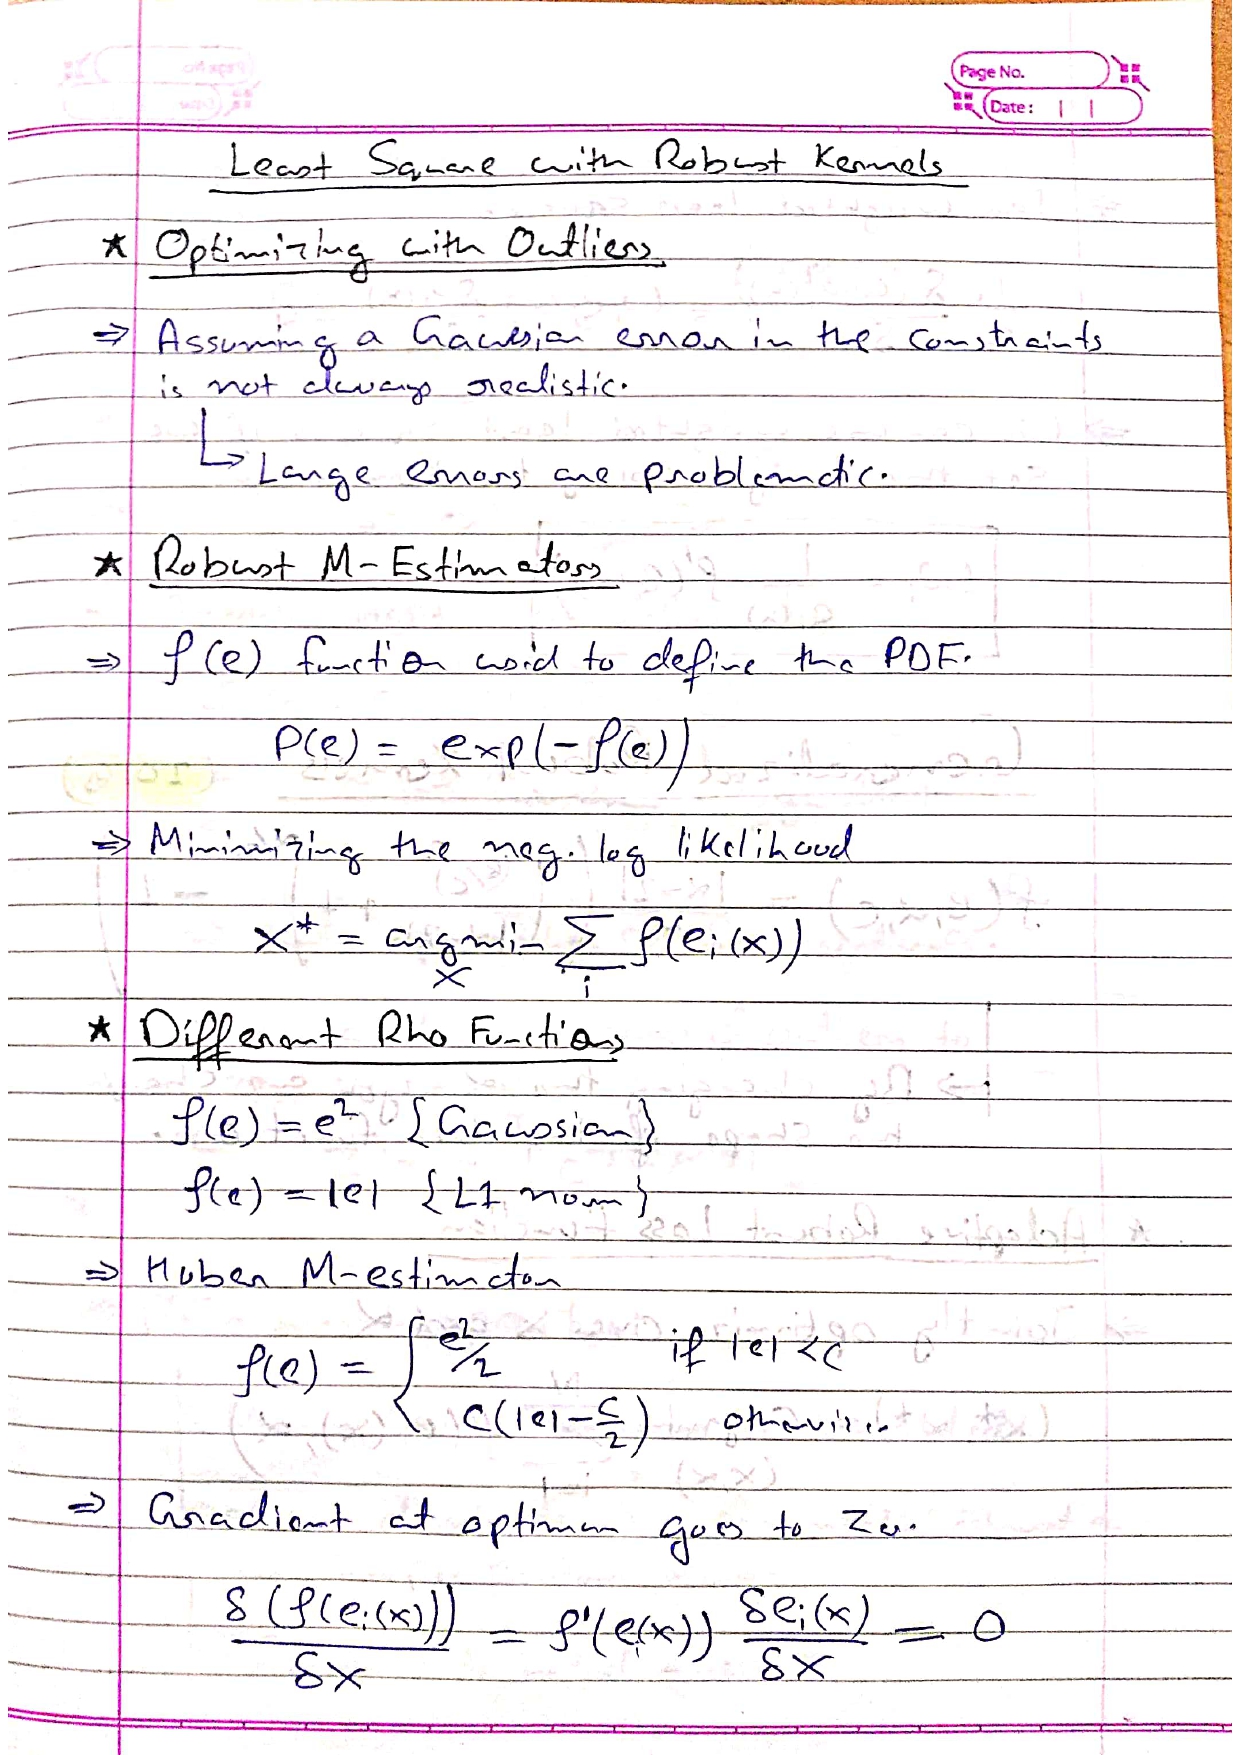 Page No.
Date: | |
Least Square with Robust Kernels
★ Optimizing with Outliers
⇒ Assuming a Gaussian error in the constraints
is not always realistic.
↳ Large errors are problematic.
★ Robust M-Estimators
⇒ ρ(e) function used to define the PDF.
P(e) = exp(-ρ(e))
⇒ Minimizing the neg. log likelihood
x* = argmin Σ ρ(ei(x))
x i
★ Different Rho Functions
ρ(e) = e² {Gaussian}
ρ(e) = |e| {L1 norm}
⇒ Huber M-estimator
ρ(e) = { e²/2 if |e| < c
c(|e| - c/2) otherwise
⇒ Gradient at optimum goes to
δ(ρ(ei(x)))/δx = ρ'(ei(x)) δei(x)/δx = 0